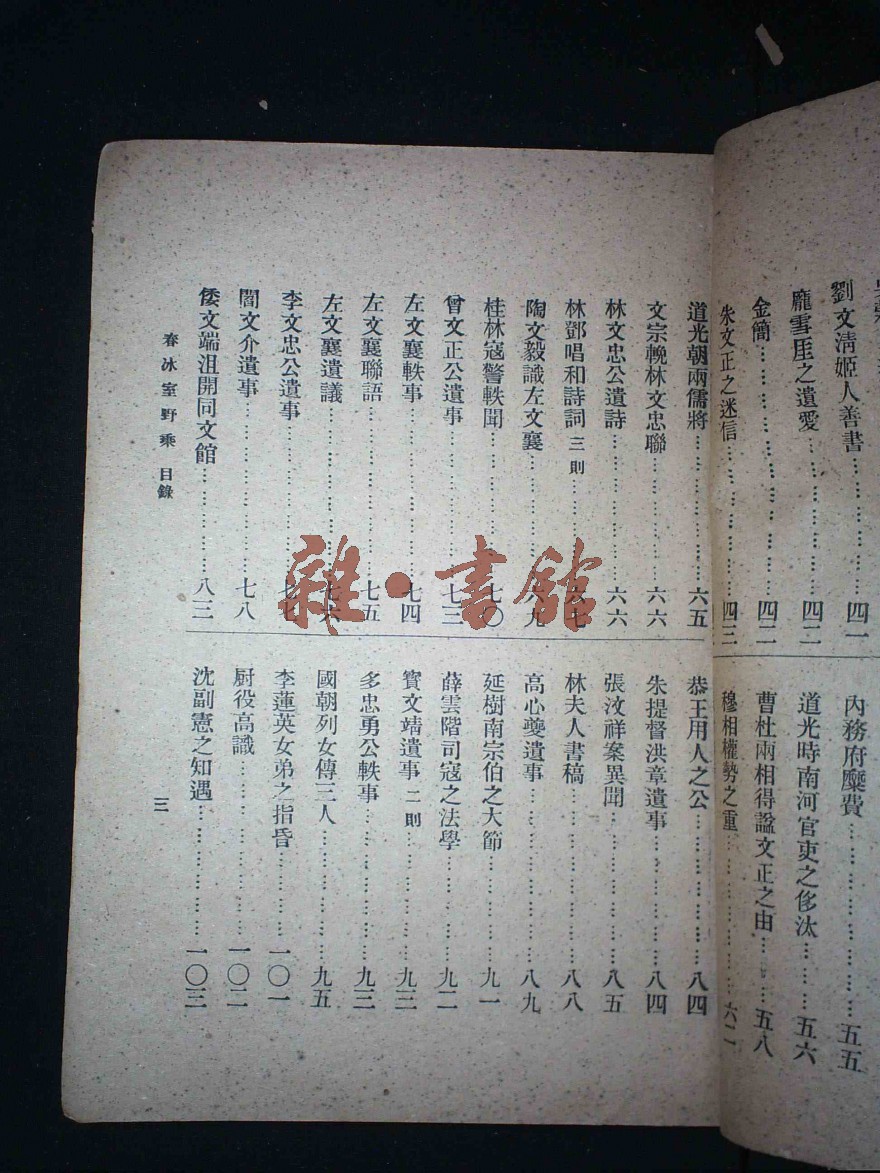 劉文淸姬人善書……四一
龐雪厓之遺愛……四二
金簡……四二
朱文正之迷信……四三
內務府糜費……五五
道光時南河官吏之侈汰……五六
曹杜兩相得諡文正之由……五八
穆相權勢之重……六二
道光朝兩儒將……六五
文宗輓林文忠聯……六六
林文忠公遺詩……六六
林鄧唱和詩詞 三則……六七
陶文毅識左文襄……六九
桂林寇警軼聞……七〇
曾文正公遺事……七三
左文襄軼事……七四
左文襄聯語……七五
左文襄遺議……七六
李文忠公遺事……七七
閻文介遺事……七八
倭文端沮開同文館……八三
恭王用人之公……八四
朱提督洪章遺事……八四
張汶祥案異聞……八五
林夫人書稿……八八
高心夔遺事……八九
延樹南宗伯之大節……九一
薛雲階司寇之法學……九二
寳文靖遺事 二則……九三
多忠勇公軼事……九三
國朝列女傳三人……九五
李蓮英女弟之指昏……一〇一
厨役高識……一〇二
沈副憲之知遇……一〇三
春冰室野乘 目錄
三
雜·書館